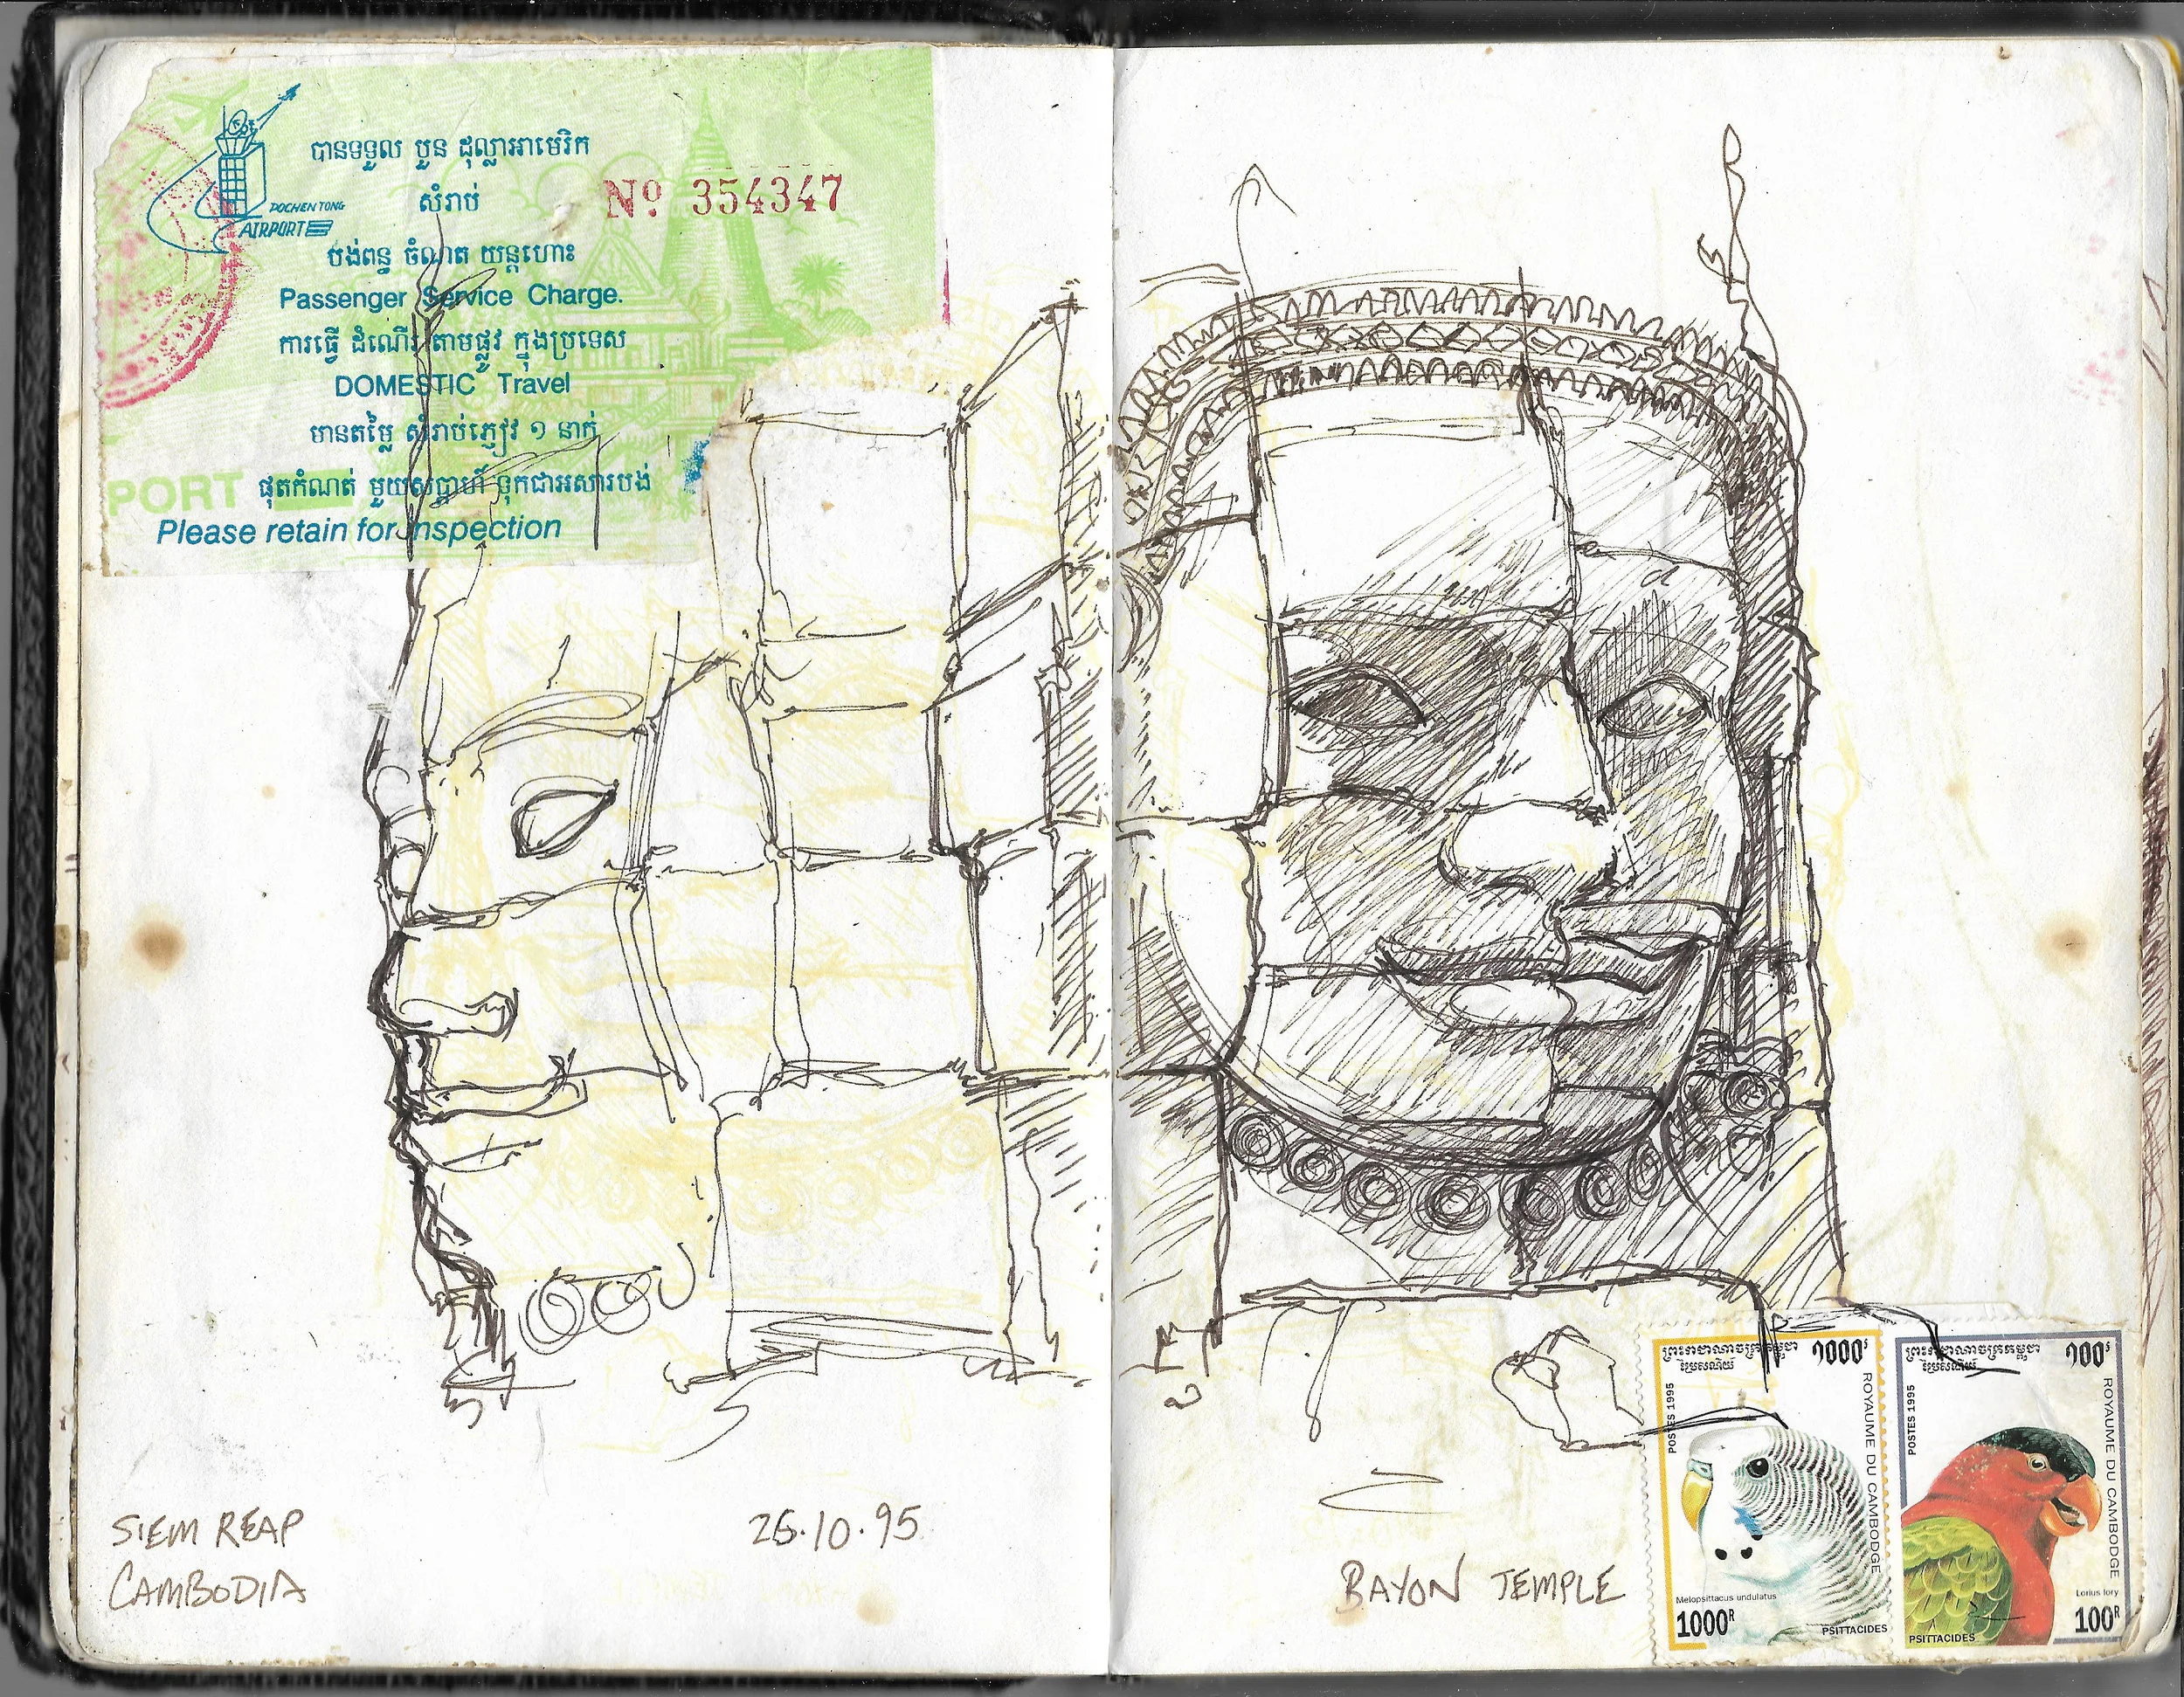 POCHENTONG
AIRPORT
បានទទួល បួន ដុល្លាអាមេរិក
សំរាប់
Nº 354347
បង់ពន្ធ ចំណត យន្តហោះ
Passenger Service Charge.
ការធ្វើ ដំណើរ តាមផ្លូវ ក្នុងប្រទេស
DOMESTIC Travel
មានតម្លៃ សំរាប់ភ្ញៀវ ១ នាក់
PORT
ផុតកំណត់ មួយសប្តាហ៍ ទុកជាអសារបង់
Please retain for inspection
SIEM REAP
CAMBODIA
26.10.95
BAYON TEMPLE
ព្រះរាជាណាចក្រកម្ពុជា
ប្រៃសណីយ៍
១០០០៛
POSTES 1995
ROYAUME DU CAMBODGE
Melopsittacus undulatus
1000R
PSITTACIDES
ព្រះរាជាណាចក្រកម្ពុជា
ប្រៃសណីយ៍
១០០៛
POSTES 1995
ROYAUME DU CAMBODGE
Lorius lory
100R
PSITTACIDES